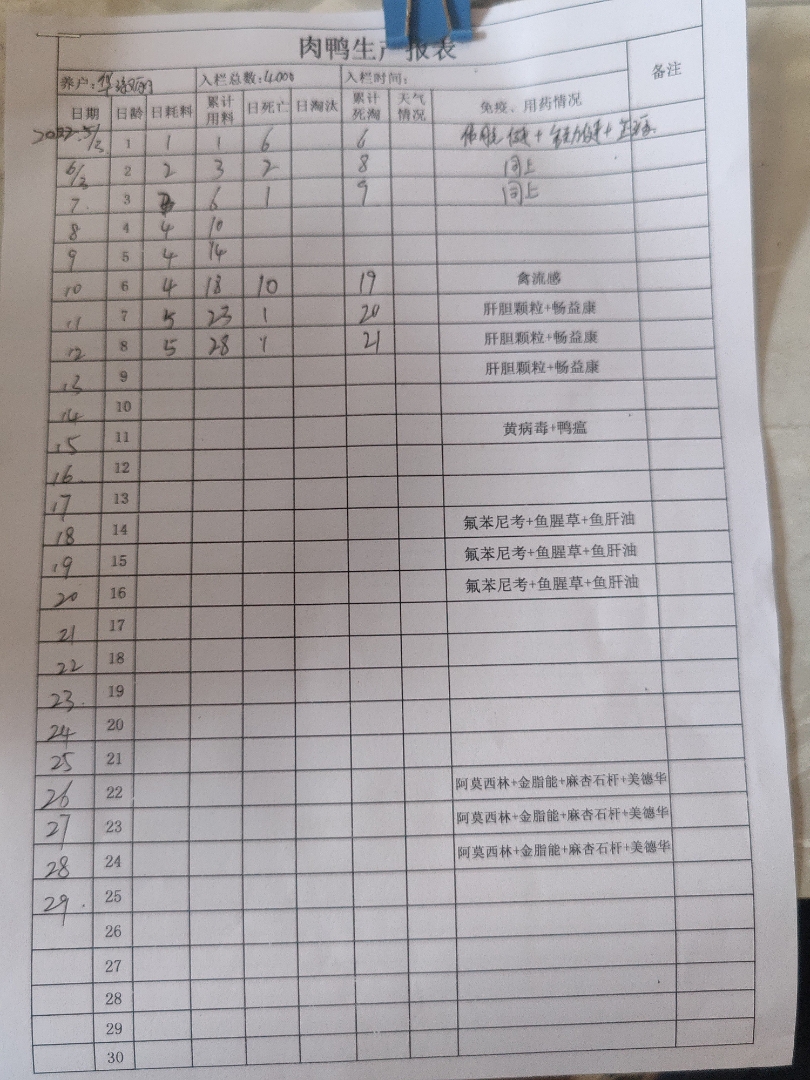 肉鸭生产报表
养户: 入栏总数:4000 入栏时间: 备注
日期 日龄 日耗料 累计用料 日死亡 日淘汰 累计死淘 天气情况 免疫、用药情况
5/3 1 1 1 6 6
6/3 2 2 3 2 8 同上
7 3 6 1 9 同上
8 4 4 10
9 5 4 14
10 6 4 18 10 19 禽流感
11 7 5 23 1 20 肝胆颗粒+畅益康
12 8 5 28 1 21 肝胆颗粒+畅益康
13 9 肝胆颗粒+畅益康
14 10
15 11 黄病毒+鸭瘟
16 12
17 13
18 14 氟苯尼考+鱼腥草+鱼肝油
19 15 氟苯尼考+鱼腥草+鱼肝油
20 16 氟苯尼考+鱼腥草+鱼肝油
21 17
22 18
23 19
24 20
25 21
26 22 阿莫西林+金脂能+麻杏石杆+美德华
27 23 阿莫西林+金脂能+麻杏石杆+美德华
28 24 阿莫西林+金脂能+麻杏石杆+美德华
29 25
26
27
28
29
30